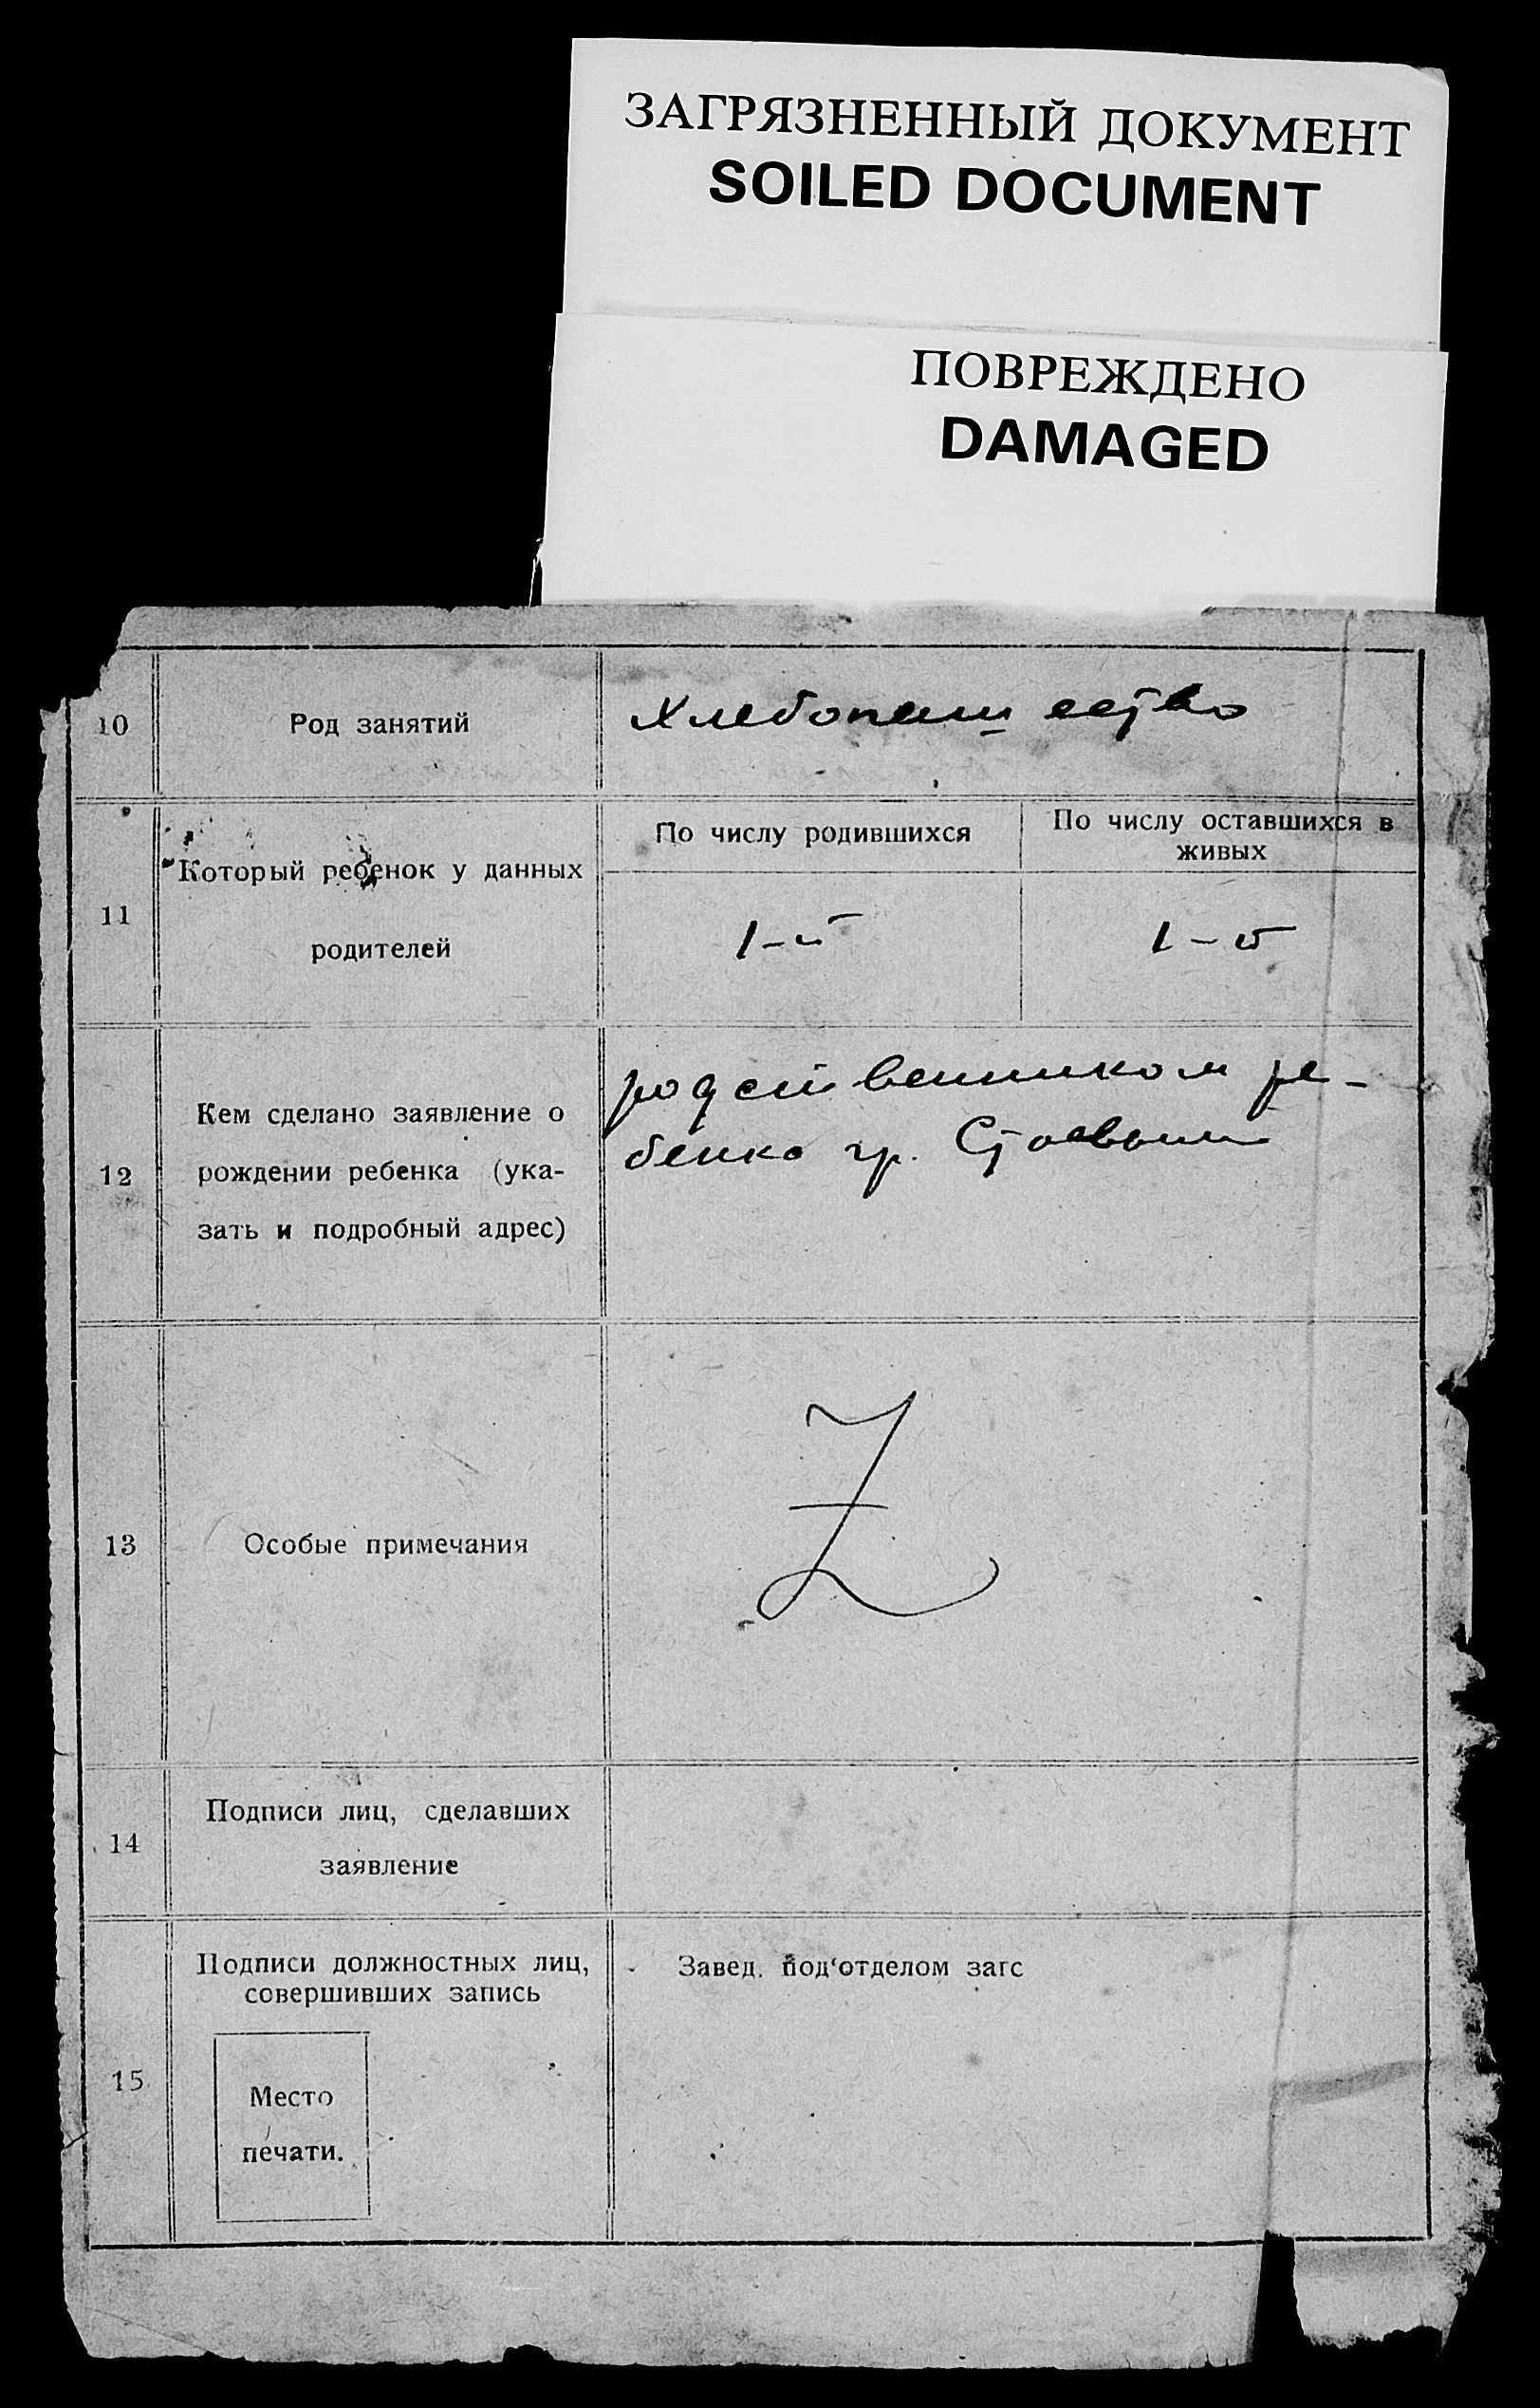 ЗАГРЯЗНЕННЫЙ ДОКУМЕНТ
SOILED DOCUMENT
ПОВРЕЖДЕНО
DAMAGED
10
Род занятий
Хлебопашество
11
Который ребенок у данных
родителей
По числу родившихся
По числу оставшихся в
живых
1-й
1-й
12
Кем сделано заявление о
рождении ребенка (ука-
зать и подробный адрес)
родственником ре-
бенка гр.
13
Особые примечания
Z
14
Подписи лиц, сделавших
заявление
15
Подписи должностных лиц,
совершивших запись
Место
печати.
Завед. под‘отделом загс